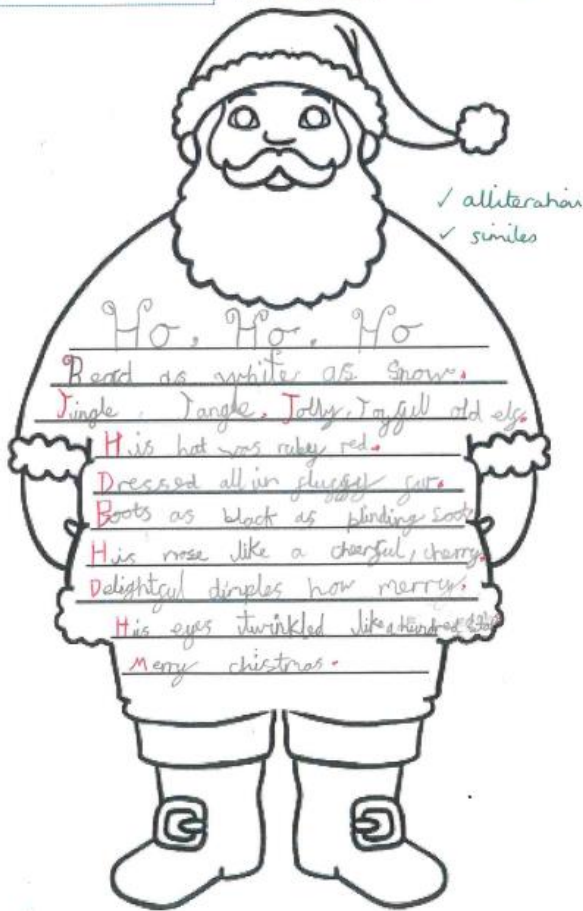 ✓ alliteration
✓ similes
Ho, Ho, Ho
Beard as white as snow.
Jingle, Jangle, Jolly, Joyfull old elf.
His hat was ruby red.
Dressed all in fluffy fur.
Boots as black as blinding soot
His nose like a cheerful, cherry.
Delightful dimples how merry.
His eyes twinkled like a hundred
Merry chistmas.